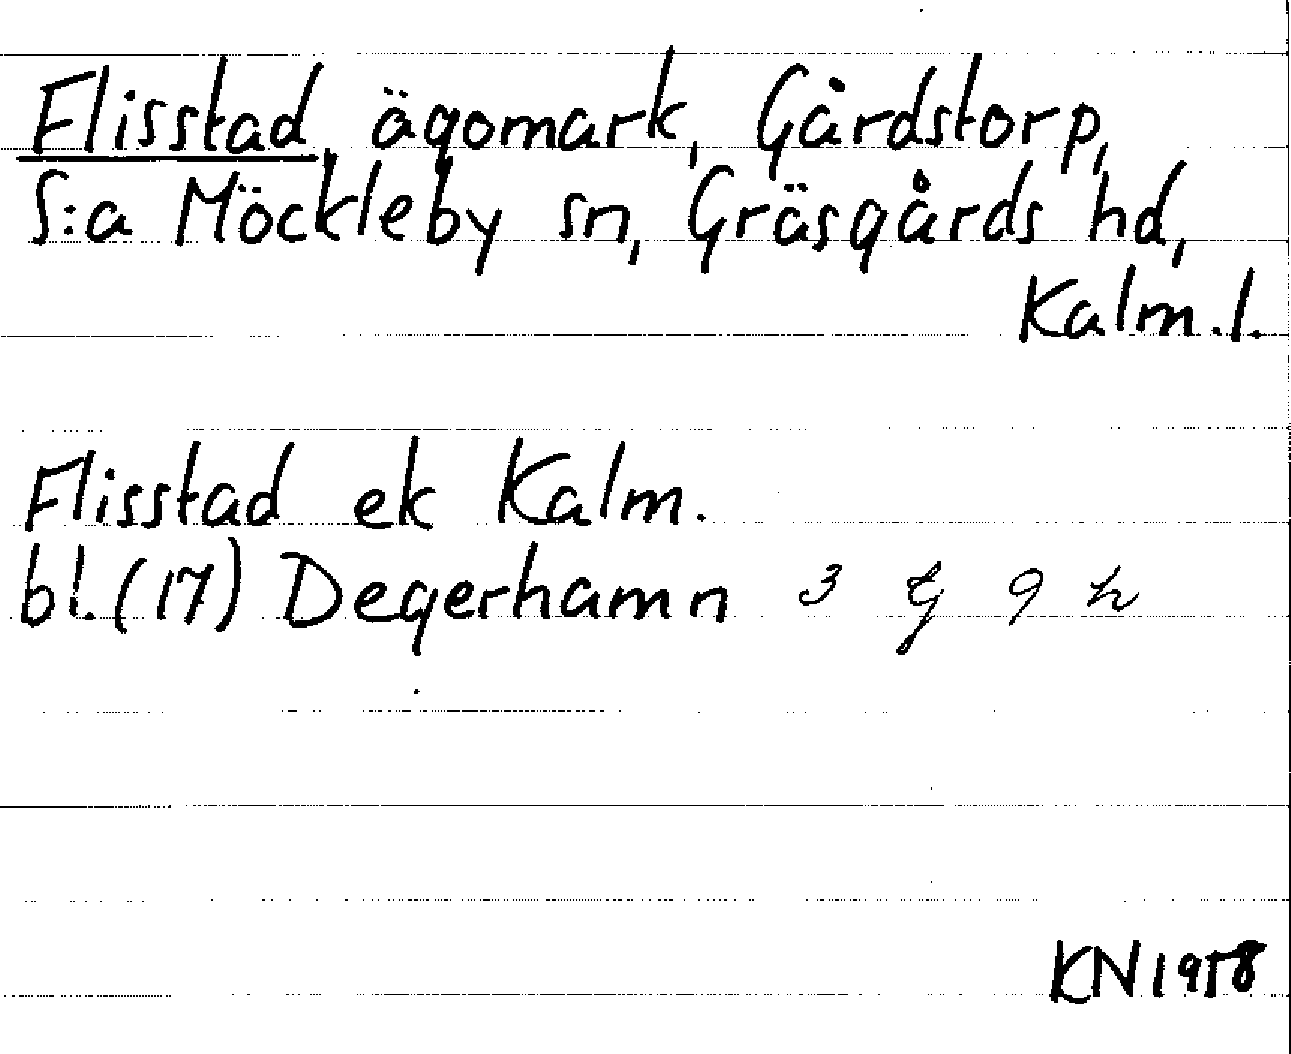 Flisstad, ägomark, Gårdstorp,
S:a Möckleby sn, Gräsgårds hd,
Kalm. l.
Flisstad ek Kalm.
bl. (17) Degerhamn 3 G 9 h
KN 1958